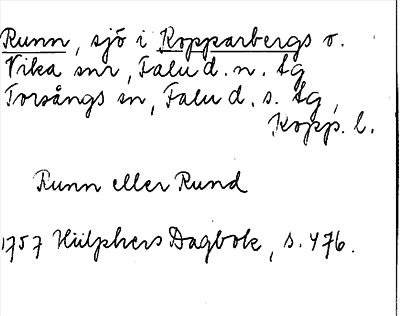 Runn, sjö i Kopparbergs o.
Vika snr, Falu d. n. tg
Torsångs sn, Falu d. s. tg,
Kopp. l.
Runn eller Rund
1757 Hülphers Dagbok, s. 476.